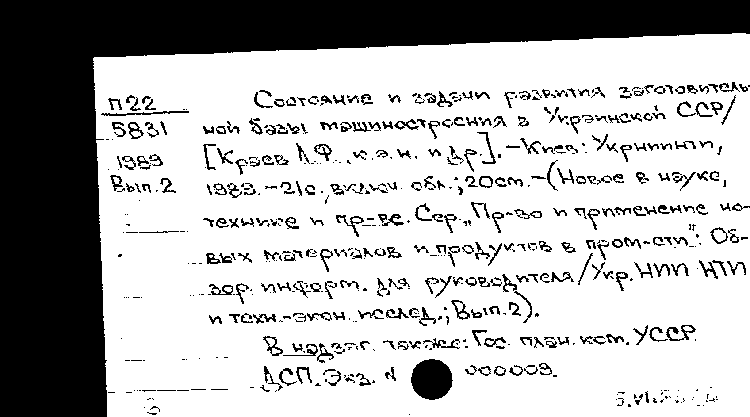 П22
5831
1989
Вып.2
Состояние и задачи развития заготовитель-
ной базы машиностроения в Украинской ССР/
[Краев Л.Ф., к.э.н. и др.]. -Киев: Укрниинти,
1989. -21с., включ. обл.; 20см. -(Новое в науке,
технике и пр-ве. Сер. „Пр-во и применение но-
вых материалов и продуктов в пром-сти": Об-
зор. информ. для руководителя/Укр. НИИ НТИ
и техн.-экон. исслед.; Вып.2).
В надзаг. также: Гос. план. ком. УССР.
ДСП. Экз. N 000009.